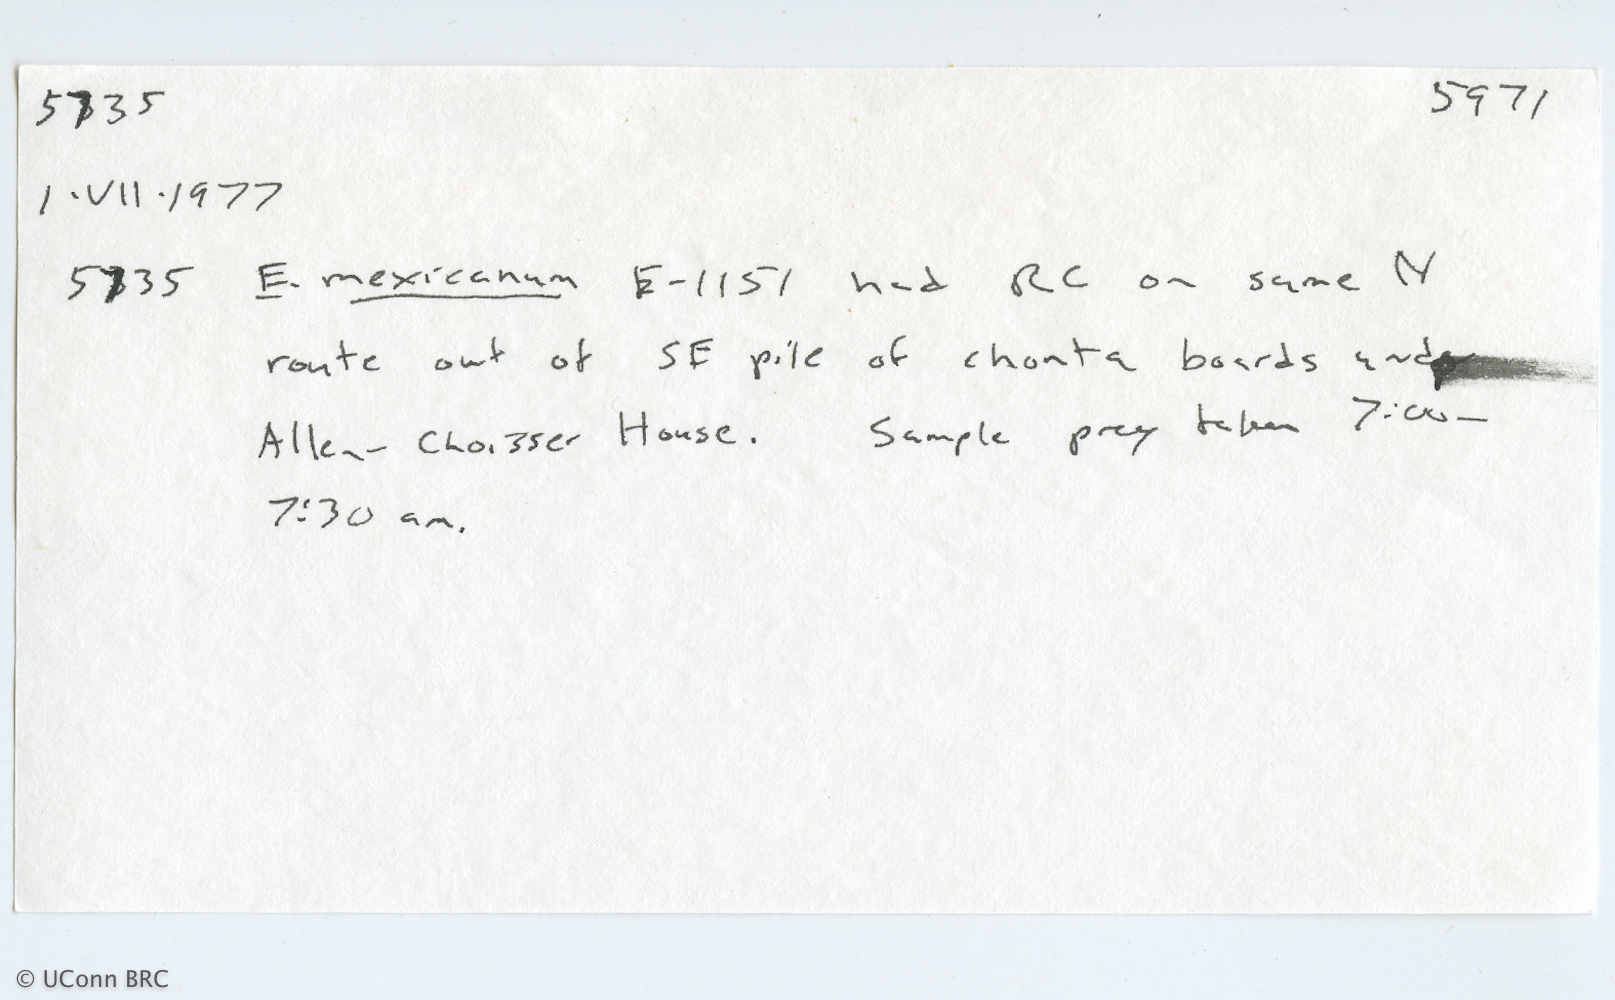 5735 5971
1·VII·1977
5735 E. mexicanum E-1151 had RC on same N
route out of SE pile of chonta boards under
Allen-Choisser House. Sample prey taken 7:00-
7:30 am.
© UConn BRC